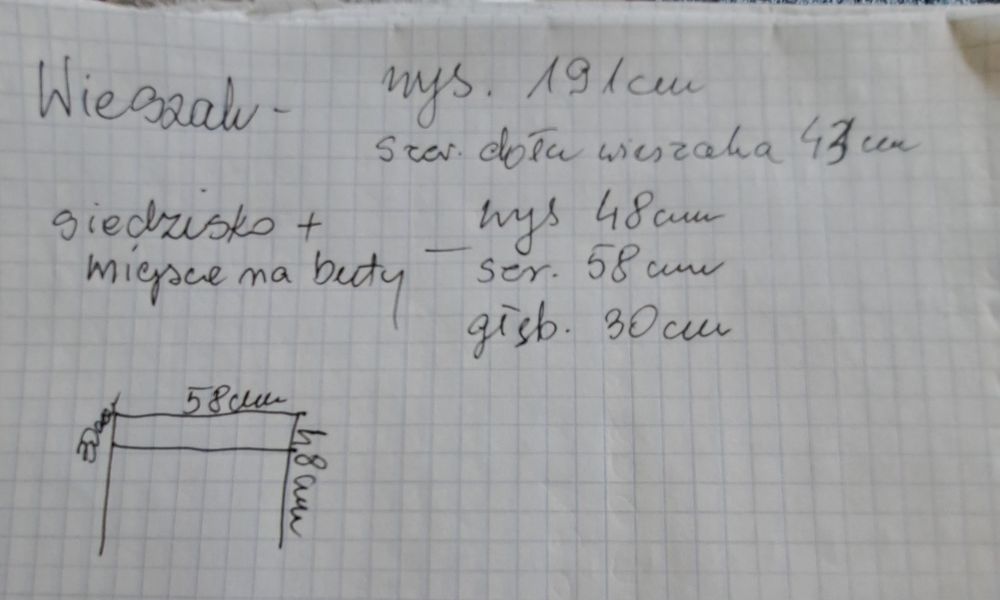 Wieszak - wys. 191cm
szer. dołu wieszaka cm
siedzisko + wys 48cm
miejsce na buty — szer. 58cm
głęb. 30cm
58cm
30cm
48cm